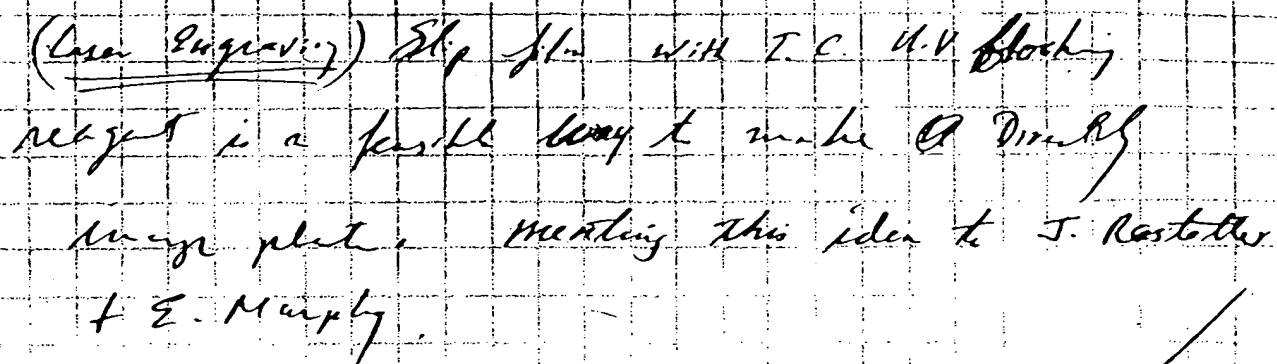 (Laser Engraving) Slip film with I.C. U.V blocking
reagent is a feasible way to make a Directly
image plate. Menting this idea to J. Rastetter
+ E. Murphy.